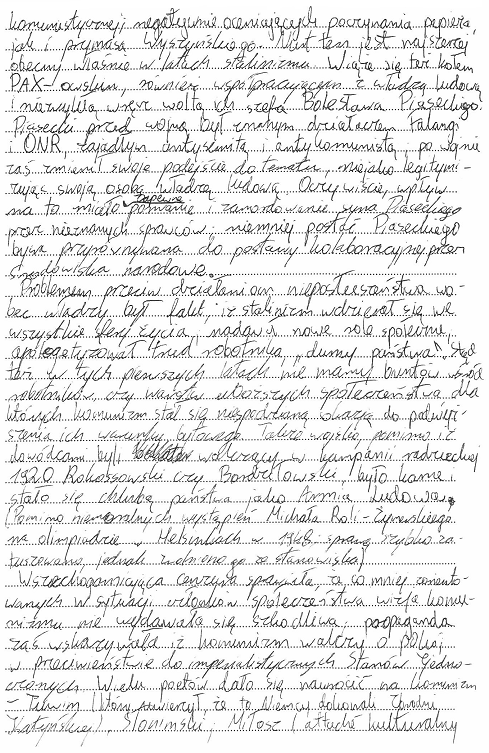 komunistycznej negatywnie oceniających poczynania papieża,
jak i prymasa Wyszyńskiego. Nurt ten jest najszerzej
obecny właśnie w latach stalinizmu. Wiąże się też kołem
PAX-owskim, również współpracującym z władzą ludową
i niezwykłą wręcz woltą ich szefa Bolesława Piaseckiego.
Piasecki przed wojną był znanym działaczem Falangi
i ONR, zajadłym antysemitą i antykomunistą, po wojnie
zaś zmienił swoje podejście do tematu, niejako legitymi-
zując swoją osobą władzę ludową. Oczywiście, wpływ
na to miało zapewne porwanie i zamordowanie syna Piaseckiego
przez nieznanych sprawców, niemniej postać Piaseckiego
bywa przyrównywana do postawy kolaboracyjnej przez
środowiska narodowe.
Problemem przeciw działaniom nieposłuszeństwa wo-
bec władzy był fakt, iż stalinizm wdzierał się we
wszystkie sfery życia, nadawał nowe role społeczne,
apologetyzował trud robotnika, "dumy państwa". Stąd
też w tych pierwszych latach nie mamy buntów wśród
robotników, czy warstw uboższych społeczeństwa, dla
których komunizm stał się niespodzianą okazją do podwyż-
szenia ich warunku bytowego. Także wojsko, pomimo iż
dowódcami byli walczący w kampanii radzieckiej
1920 Rokossowski czy Bordziłowski, było karne i
stało się chlubą państwa jako Armia Ludowa.
(Pomimo niemoralnych wystąpień Michała Roli-Żymierskiego
na olimpiadzie w Helsinkach w 1948 sprawę szybko za-
tuszowano, jednak zwolniono go ze stanowiska)
Wszechogarniająca cenzura sprawiała, że co mniej zoriento-
wanych w sytuacji członków społeczeństwa wizja komu-
nizmu nie wydawała się szkodliwa, propaganda
zaś wskazywała iż komunizm walczy o pokój
w przeciwieństwie do imperialistycznych Stanów Zjedno-
czonych. Wielu poetów dało się nawrócić na komunizm
- Tuwim (który uwierzył, że to Niemcy dokonali Zbrodni
Katyńskiej), Słonimski, Miłosz (attaché kulturalny